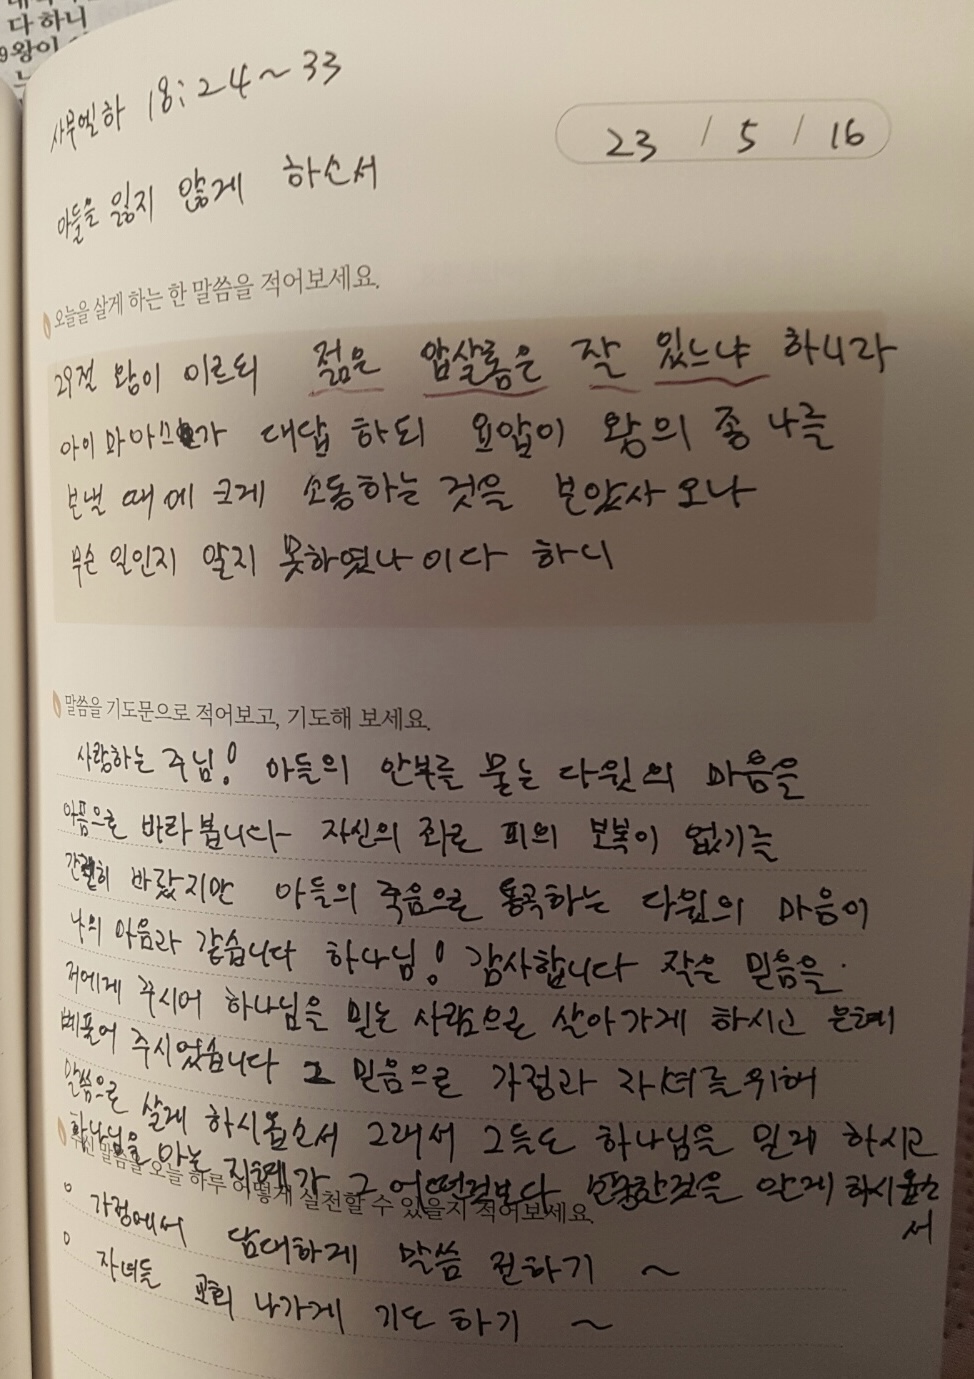 다 하니
사무엘하 18:24~33
23 / 5 / 16
아들을 잃지 않게 하소서
오늘을 살게 하는 한 말씀을 적어보세요.
29절 왕이 이르되 젊은 압살롬은 잘 있느냐 하니라
아이마아스가 대답 하되 요압이 왕의 종 나를
보낼 때에 크게 소동하는 것을 보았사오나
무슨 일인지 알지 못하였나이다 하니
말씀을 기도문으로 적어보고, 기도해 보세요.
사랑하는 주님! 아들의 안부를 묻는 다윗의 마음을
아픔으로 바라봅니다 자신의 죄로 피의 보복이 없기를
간절히 바랐지만 아들의 죽음으로 통곡하는 다윗의 마음이
나의 마음과 같습니다 하나님! 감사합니다 작은 믿음을
저에게 주시어 하나님을 믿는 사람으로 살아가게 하시고 은혜
베풀어 주시었습니다 그 믿음으로 가정과 자녀를 위해
말씀으로 살게 하시옵소서 그래서 그들도 하나님을 믿게 하시고
하나님을 아는 지혜가 그 어떤것보다 귀한것을 알게 하시옵소
서
주신 말씀을 오늘 하루 어떻게 실천할 수 있을지 적어보세요.
○ 가정에서 담대하게 말씀 전하기 ~
○ 자녀들 교회 나가게 기도 하기 ~